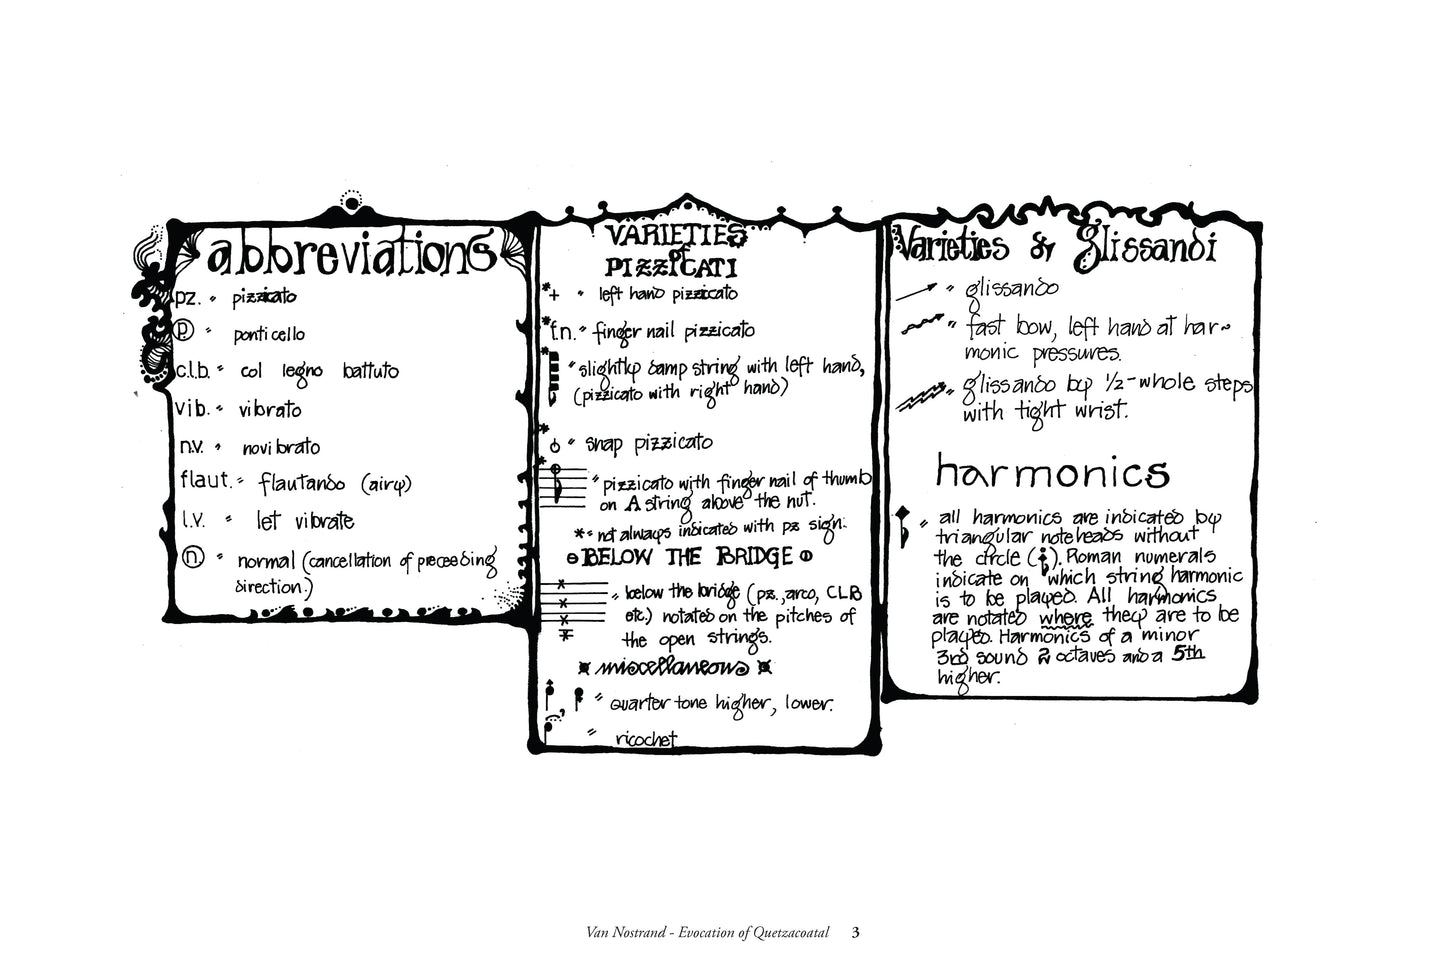 abbreviations
pz. = pizzicato
Ⓟ = ponticello
c.l.b. = col legno battuto
vib. = vibrato
n.v. = novibrato
flaut. = flautando (airy)
l.v. = let vibrate
ⓝ = normal (cancellation of preceeding
direction.)
VARIETIES
of
PIZZICATI
*+ = left hand pizzicato
*f.n. = finger nail pizzicato
* = slightly damp string with left hand,
(pizzicato with right hand)
* = snap pizzicato
* = pizzicato with finger nail of thumb
on A string above the nut.
*= not always indicated with pz sign.
BELOW THE BRIDGE
= below the bridge (pz., arco, CLB
etc.) notated on the pitches of
the open strings.
miscellaneous
, = quarter tone higher, lower.
= ricochet
Varieties of glissandi
= glissando
= fast bow, left hand at har~
monic pressures.
= glissando by 1/2-whole steps
with tight wrist.
harmonics
= all harmonics are indicated by
triangular noteheads without
the circle ( ). Roman numerals
indicate on which string harmonic
is to be played. All harmonics
are notated where they are to be
played. Harmonics of a minor
3rd sound 2 octaves and a 5th
higher.
Van Nostrand - Evocation of Quetzacoatal 3